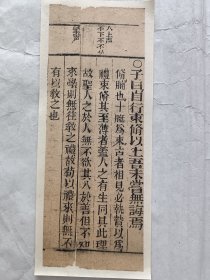 ○子曰自行束脩以上吾未嘗無誨焉
脩脯也十脡爲束古者相見必執贄以爲
禮束脩其至薄者蓋人之有生同具此理
故聖人之於人無不欲其入於善但不知
來學則無往教之禮故苟以禮來則無不
有以教之也